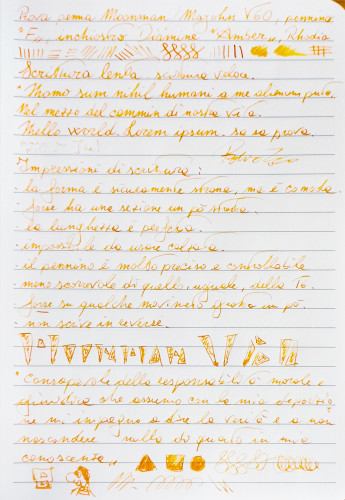 Prova penna Moonman / Majohn V60, pennino
"F", inchiostro Diamine "Amber", Rhodia
Scrittura lenta. scrittura veloce.
"Homo sum nihil humani a me alienum puto."
Nel mezzo del cammin di nostra vita.
Hello world. Lorem ipsum. sa sa prova.
Impressioni di scrittura:
- la forma è sicuramente strana, ma è comoda.
- forse ha una sezione un pò stretta.
- la lunghezza è perfetta.
- impossibile da usare calzata.
- il pennino è molto preciso e controllabile
meno scorrevole di quello, uguale, della T6.
- forse su qualche movimento gratta un pò.
- non scrive in reverse.
MOONMAN V60
"Consapevole della responsabilità morale e
giuridica che assumo con la mia deposizione
mi impegno a dire la verità e a non
nascondere nulla di quanto in mia
conoscenza"